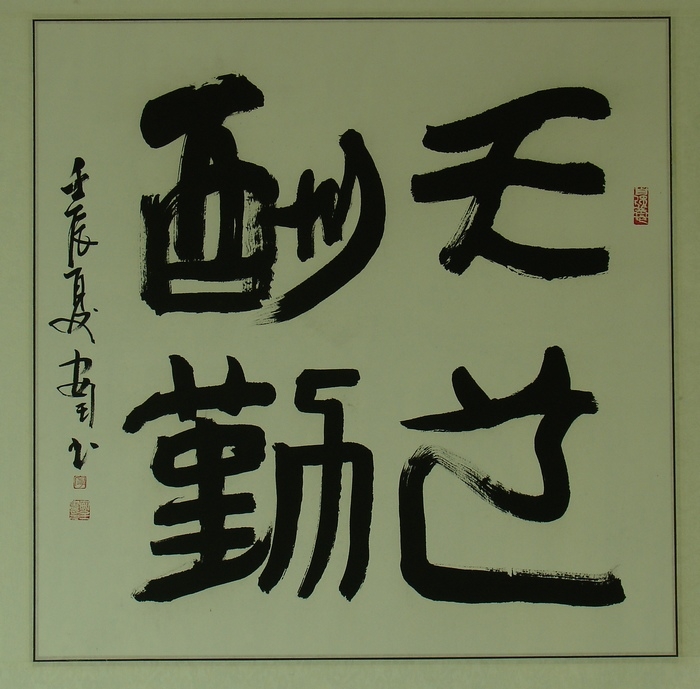 天道
酬勤
壬辰夏书